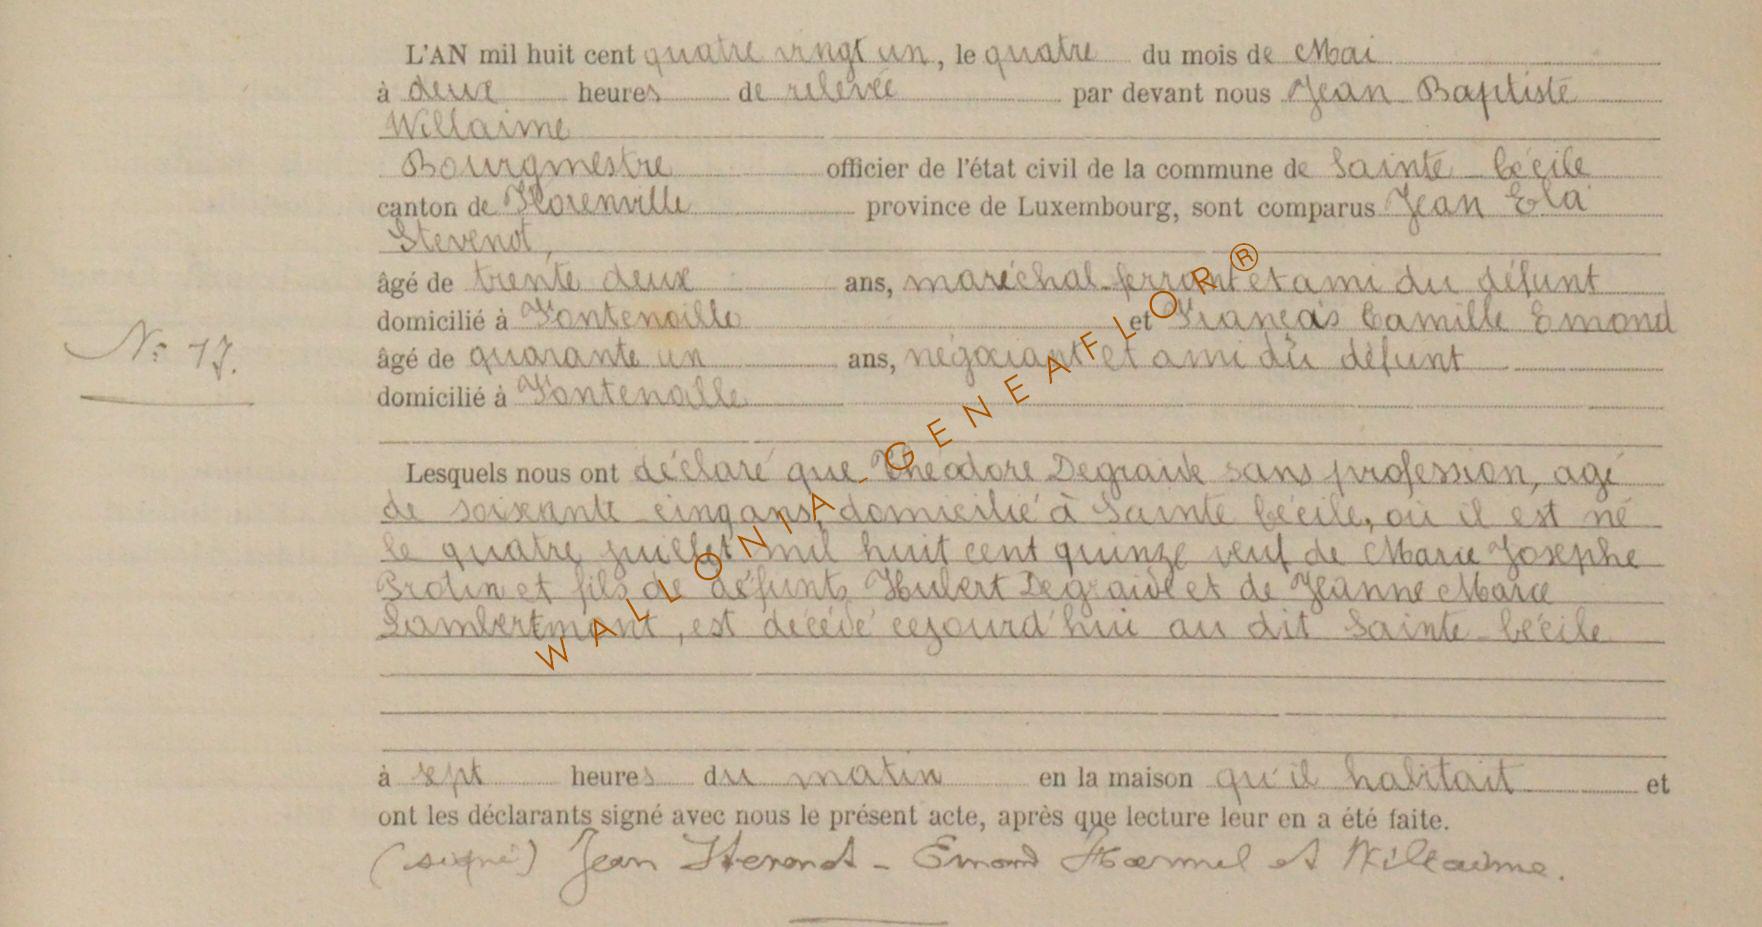 L'AN mil huit cent quatre vingt un, le quatre du mois de Mai
à deux heures de relevée par devant nous Jean Baptiste
Willaime
Bourgmestre officier de l'état civil de la commune de Sainte-Cécile
canton de Florenville province de Luxembourg, sont comparus Jean Ela
Stevenot,
âgé de trente deux ans, maréchal-ferrant et ami du défunt
domicilié à Fontenoille et François Camille Emond
N° 17.
âgé de quarante un ans, négociant et ami du défunt
domicilié à Fontenaille
Lesquels nous ont déclaré que Théodore Degraide sans profession, agé
de soixante-cinq ans, domicilié à Sainte Cécile, où il est né
le quatre juillet mil huit cent quinze veuf de Marie Josephe
Protin et fils de défunts Hubert Degraide et de Jeanne Marie
Lambertmont, est décédé cejourd'hui au dit Sainte-Cécile
à sept heures du matin en la maison qu'il habitait et
ont les déclarants signé avec nous le présent acte, après que lecture leur en a été faite.
(signé) Jean Stevenot - Emond et Willaime.
WALLONIA-GENEAFLOR®